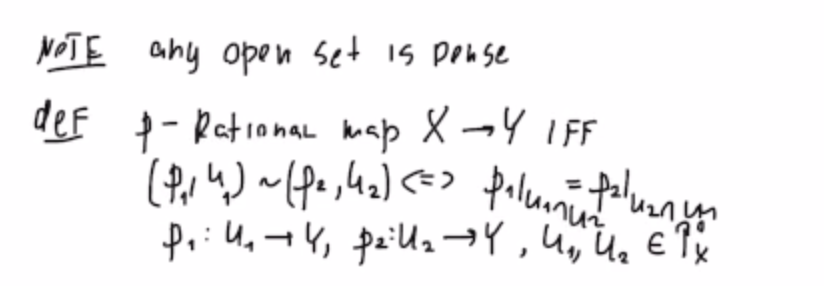 NOTE any open set is dense
def p - Rational map X → Y IFF
(p₁, U₁) ~ (p₂, U₂) <=> p₁|U₁∩U₂ = p₂|U₂∩U₁
p₁: U₁ → Y, p₂: U₂ → Y, U₁, U₂ ∈